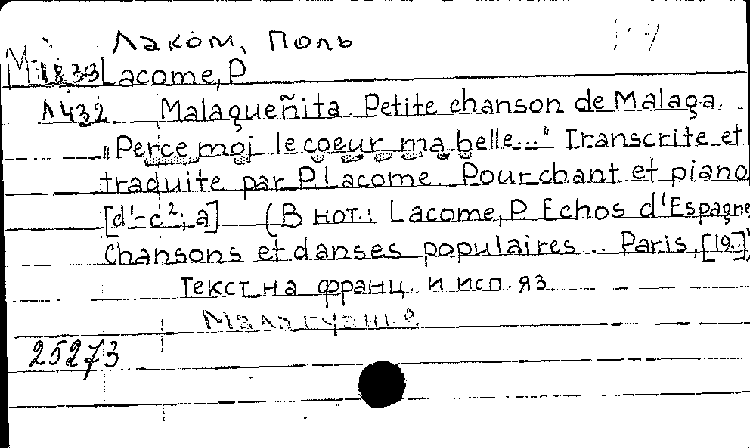 Лаком, Поль
Lacome, P
Л432 Malagueñita. Petite chanson de Malaga.
„Perce moi le coeur ma belle..." Transcrite et
traduite par P. Lacome. Pour chant et piano
[d¹-c²; a] (В нот.: Lacome, P. Echos d'Espagne
Chansons et danses populaires.. Paris, [19.]
Текст на франц. и исп. яз
25273